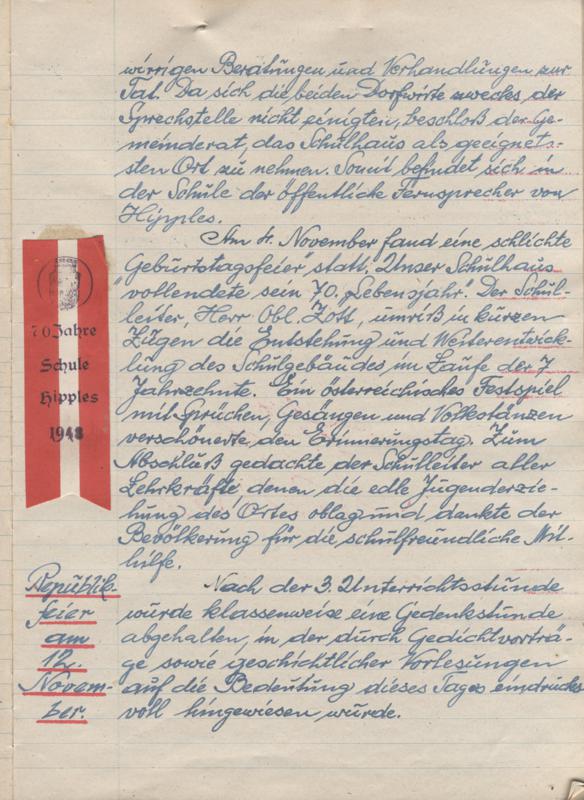 wirrigen Beratungen und Verhandlungen zur
Tat. Da sich die beiden Dorfwirte zwecks der
Sprechstelle nicht einigten, beschloß der Ge-
meinderat, das Schulhaus als geeignets-
sten Ort zu nehmen. Somit befindet sich in
der Schule der öffentliche Fernsprecher von
Hipples.
Am 4. November fand eine schlichte
"Geburtstagsfeier" statt. Unser Schulhaus
vollendete sein 70. "Lebensjahr". Der Schul-
leiter, Herr Obl. Zott, umriß in kurzen
Zügen die Entstehung und Weiterentwick-
lung des Schulgebäudes im Laufe der 7
Jahrzehnte. Ein österreichisches Festspiel
mit Sprüchen, Gesängen und Volkstänzen
verschönerte den Erinnerungstag. Zum
Abschluß gedachte der Schulleiter aller
Lehrkräfte denen die edle Jugenderzie-
hung des Ortes oblag und dankte der
Bevölkerung für die schulfreundliche Mit-
hilfe.
70 Jahre
Schule
Hipples
1948
Republik-
feier
am
12.
Novem-
ber.
Nach der 3. Unterrichtsstunde
wurde klassenweise eine Gedenkstunde
abgehalten, in der durch Gedichtvorträ-
ge sowie geschichtlicher Vorlesungen
auf die Bedeutung dieses Tages eindrucks
voll hingewiesen wurde.